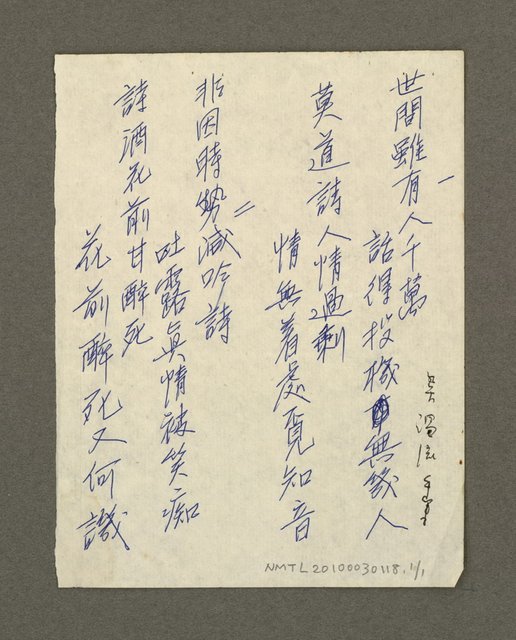 一
世間雖有人千萬
話得投機無幾人
莫道詩人情過剩
情無着處覓知音
二
非因時勢減吟詩
吐露眞情被笑痴
詩酒花前甘醉死
花前醉死又何譏
NMTL20100030118.1/1